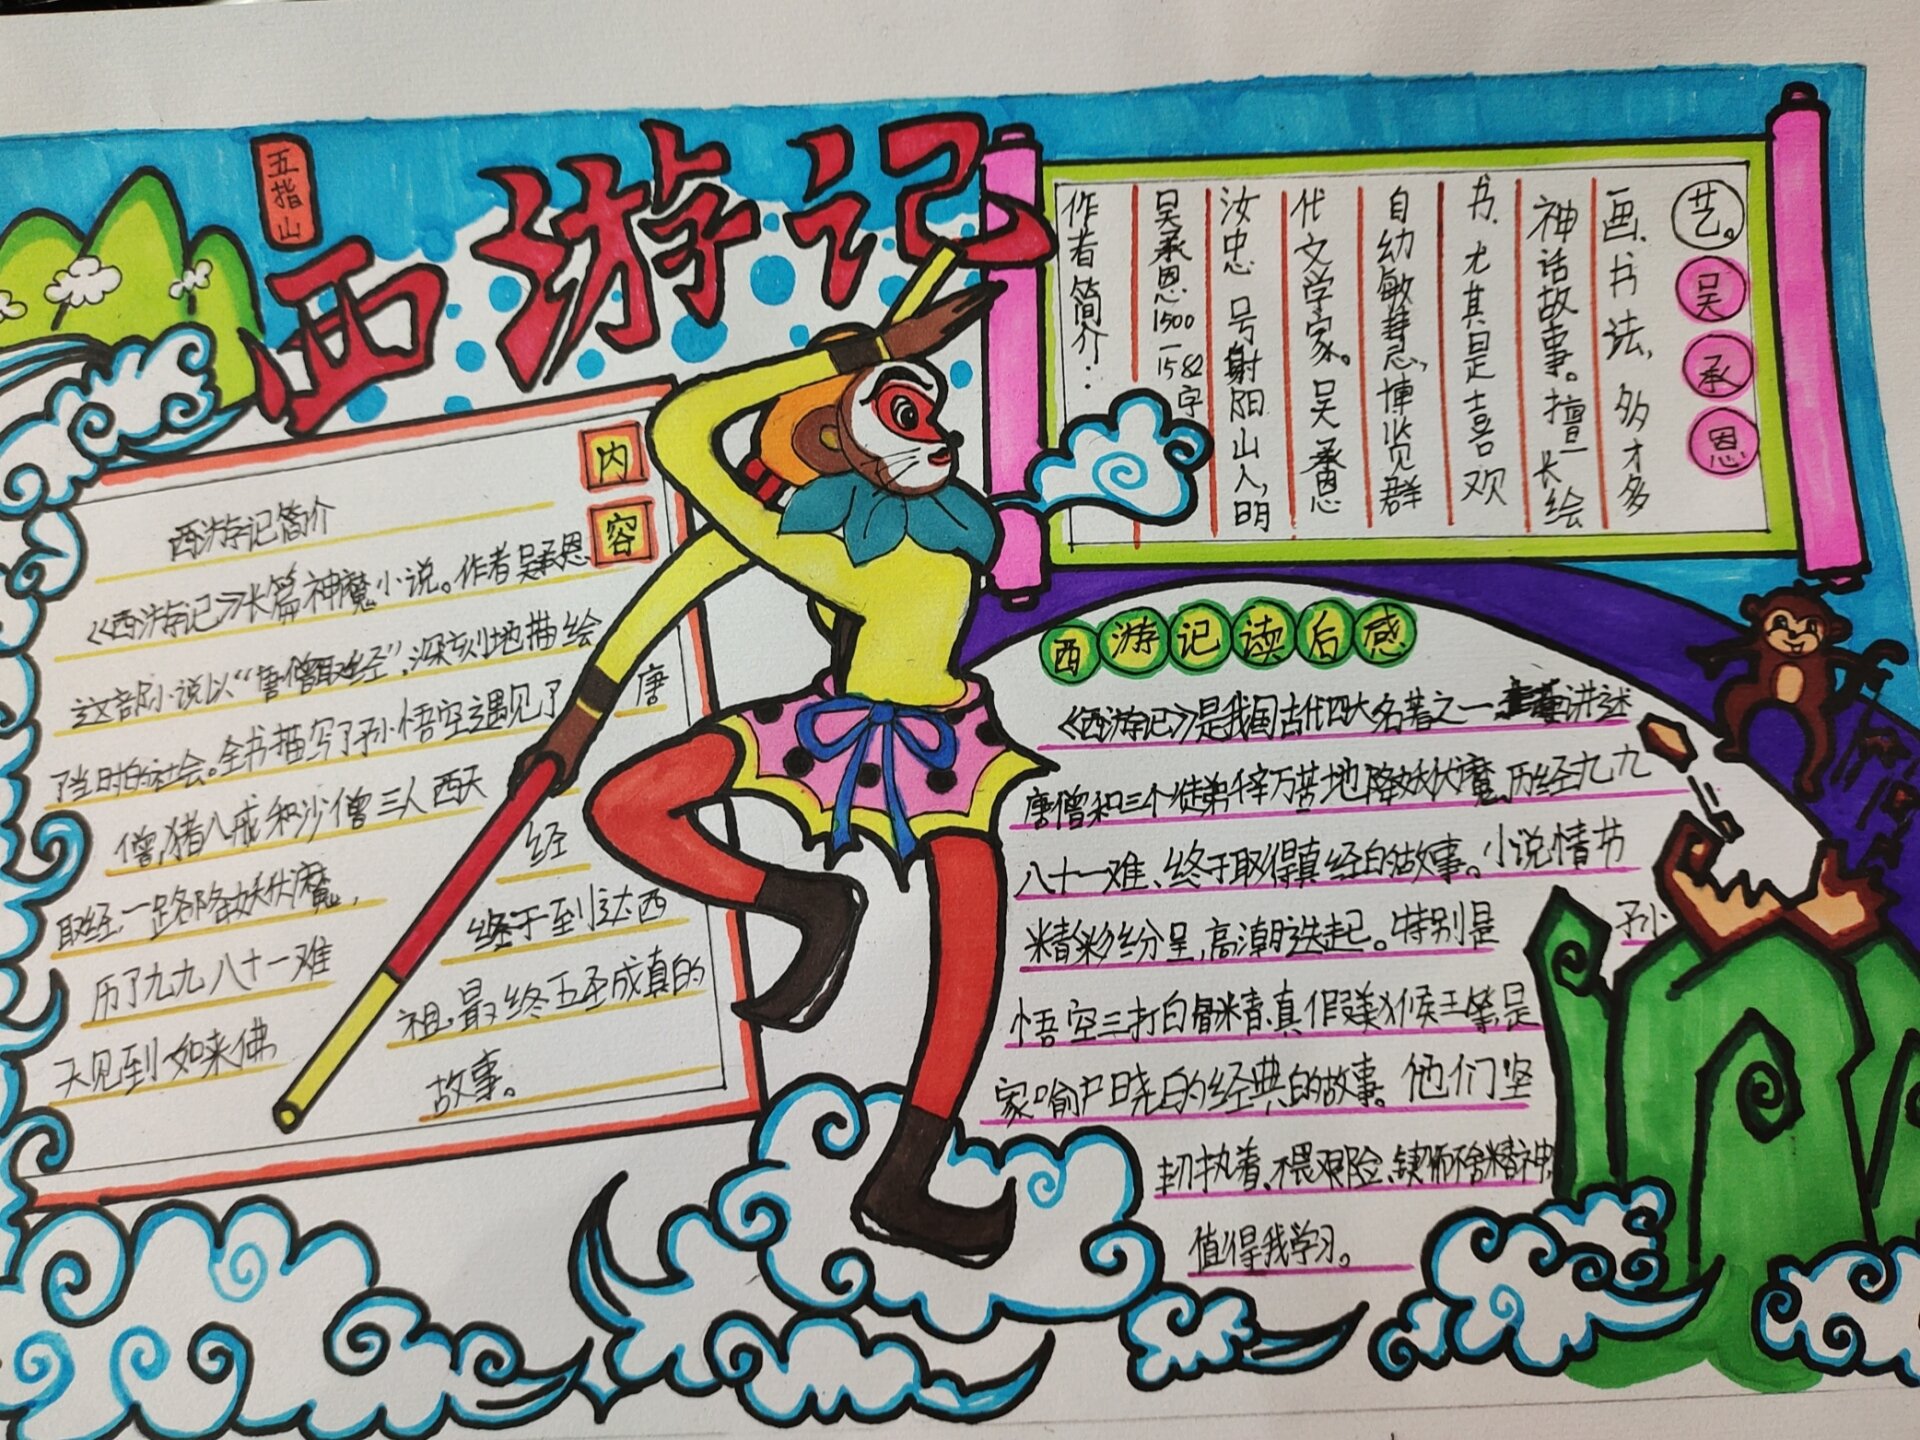 五指山
西游记
内容
西游记简介
《西游记》长篇神魔小说。作者吴承恩
这部小说以“唐僧取经”,深刻地描绘
了当时的社会。全书描写了孙悟空遇见了唐
僧,猪八戒和沙僧三人西天
取经,一路降妖伏魔,经
历了九九八十一难终于到达西
天见到如来佛祖,最终五圣成真的
故事。
作者简介:
吴承恩1500-1582字
汝忠号射阳山人,明
代文学家。吴承恩
自幼敏慧,博览群
书,尤其是喜欢
神话故事。擅长绘
画、书法,多才多
艺。
吴承恩
西游记读后感
《西游记》是我国古代四大名著之一讲述
唐僧和三个徒弟千辛万苦地降妖伏魔,历经九九
八十一难、终于取得真经的故事。小说情节
精彩纷呈,高潮迭起。特别是孙
悟空三打白骨精,真假美猴王等是
家喻户晓的经典的故事。他们坚
韧执着、不畏艰险、锲而不舍精神
值得我学习。